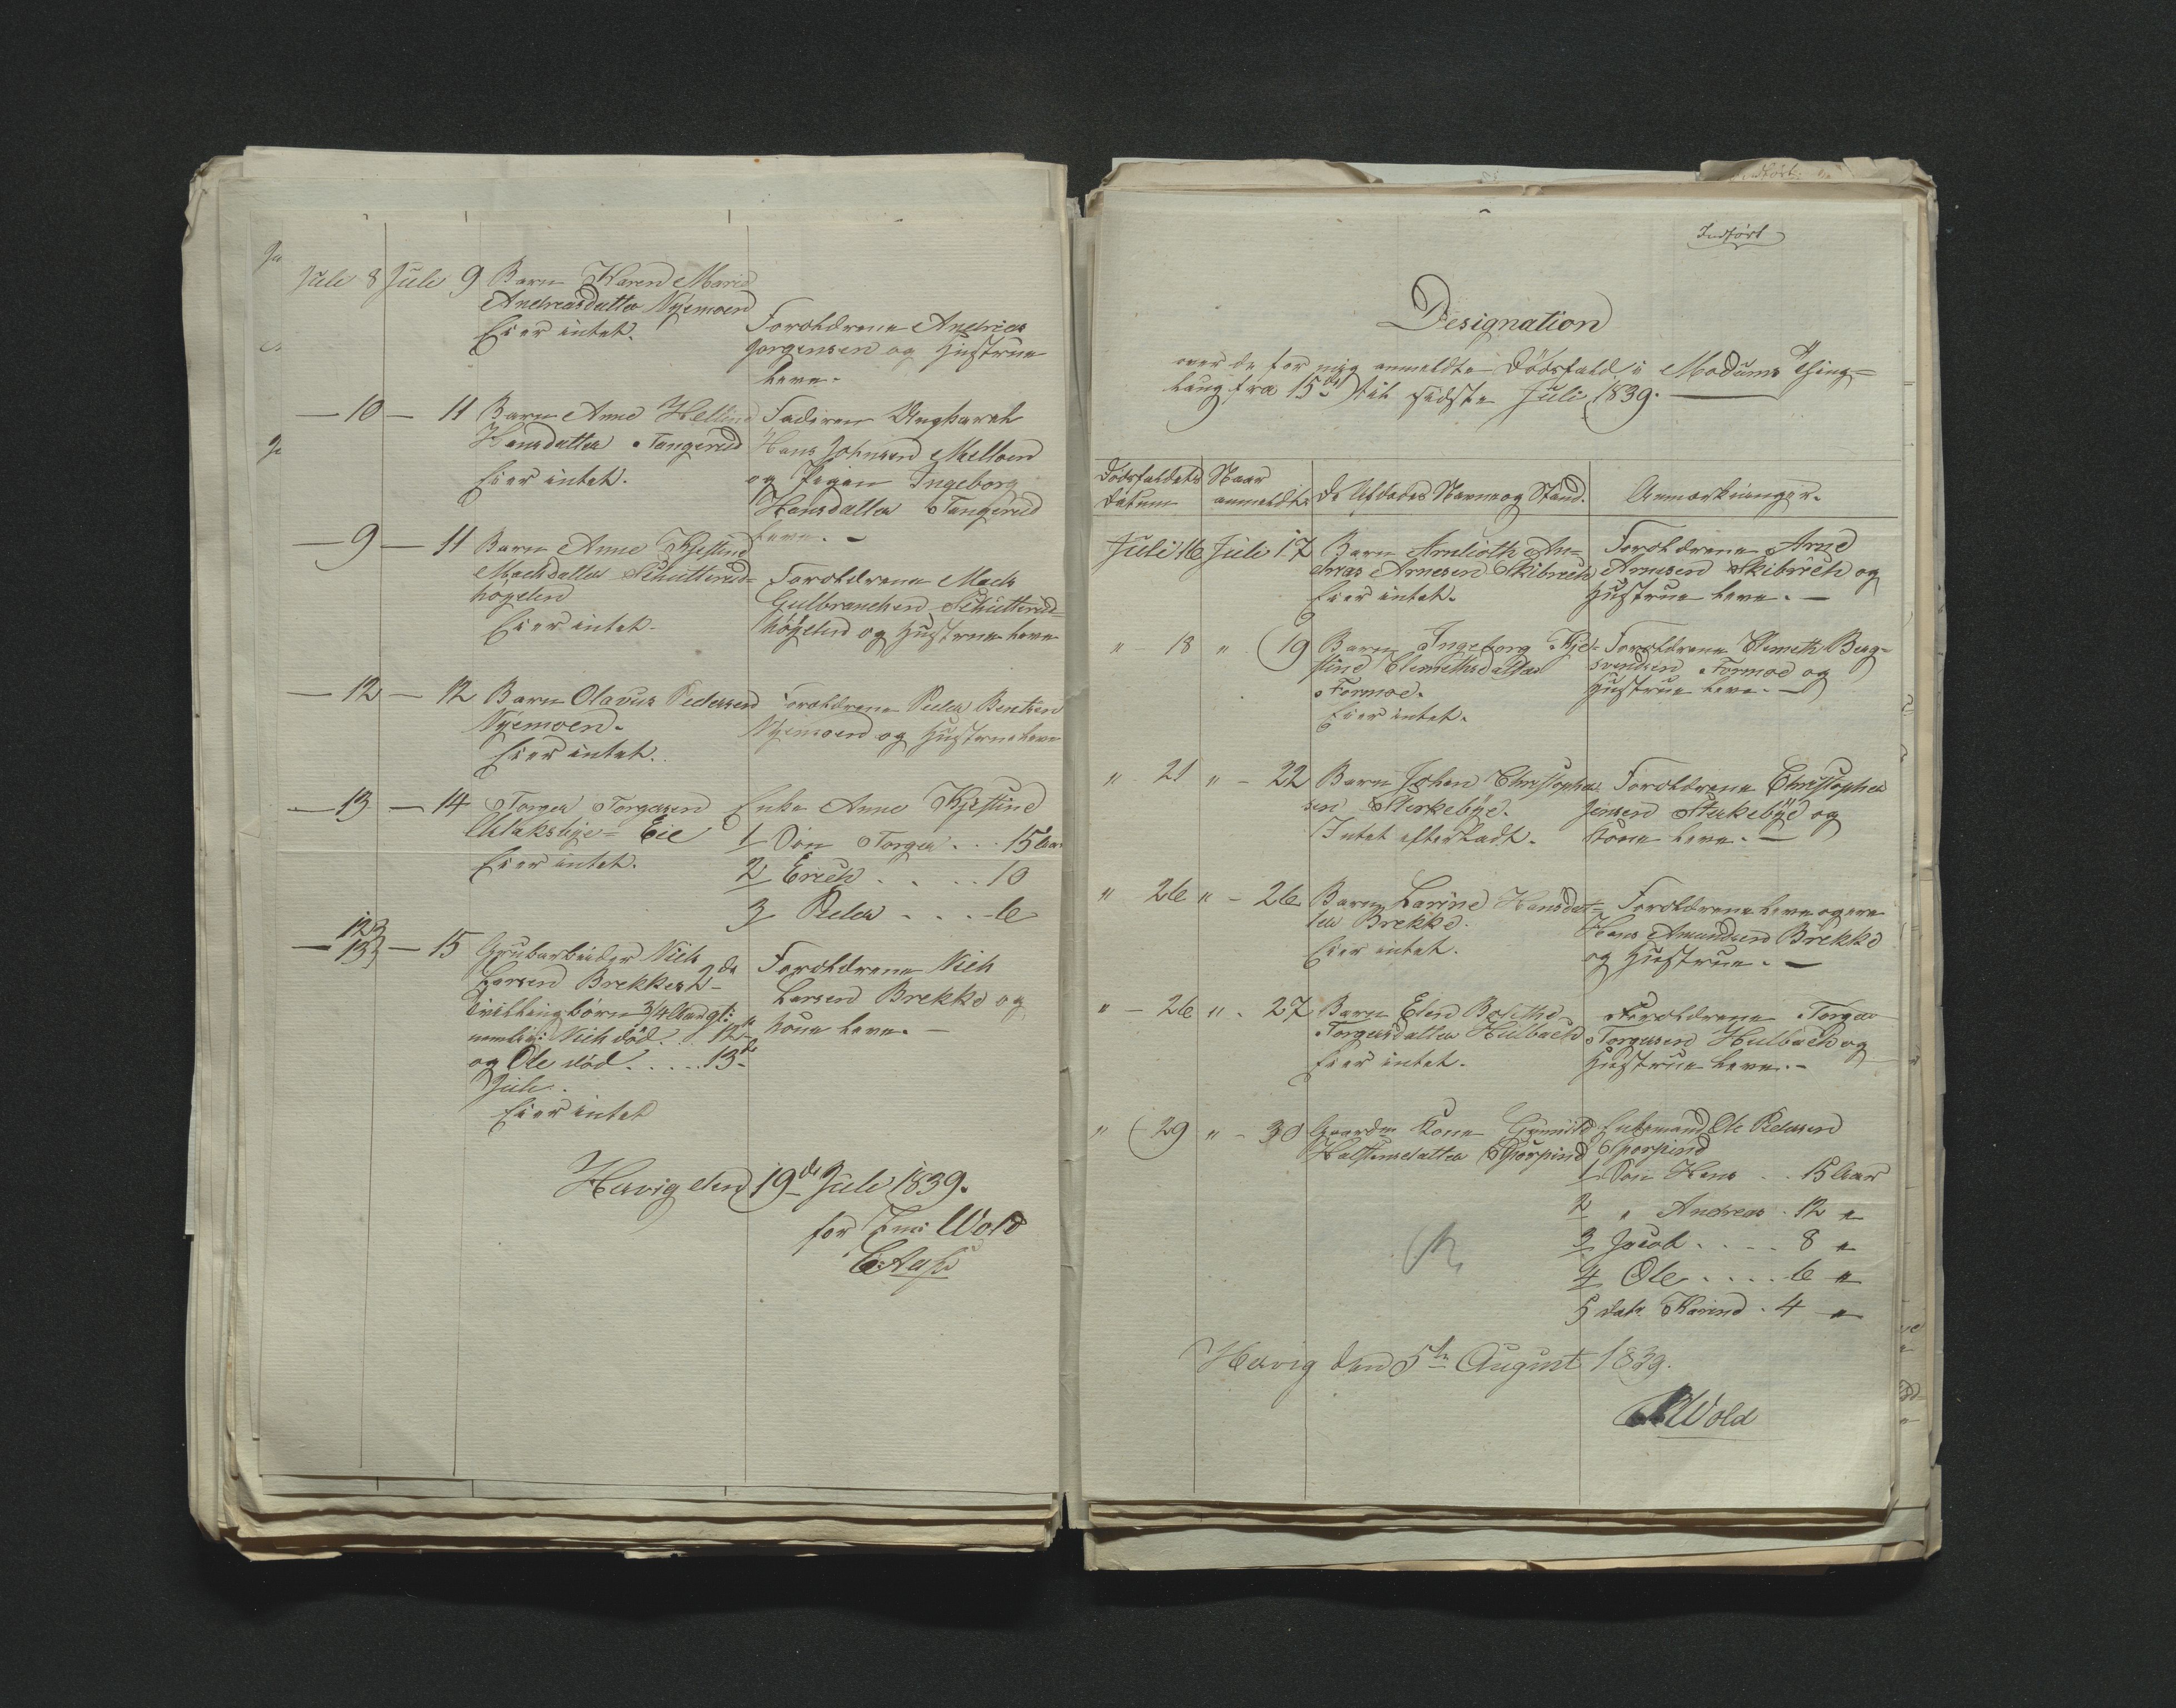 Juli 8 Juli 9 Barn Karen Marie
Andreasdatter Nyemoen
Eier intet.
Forældrene Andreas
Jørgensen og Hustrue
leve.
— 10 — 11 Barn Anne Helline
Hansdatter Tangerud
Eier intet.
Faderen Ungkarl
Hans Johnsen Melloen
og Pigen Ingeborg
Hansdatter Tangerud
leve. —
— 9 — 11 Barn Anne Kjestine
Madsdatter Schutterud=
høgden
Eier intet.
Forældrene Mads
Gulbrandsen Schutterud=
høgden og Hustrue leve
— 12 — 12 Barn Olavus Pedersen
Nyemoen.
Eier intet.
Forældrene Peder Bentsen
Nyemoen og Hustrue leve
— 13 — 14 Torger Torgersen
Eie
Eier intet.
Enke Anne Kjestine
1 Søn Torger . . . 15 Aar
2 Erich . . . . 10
3 Peder . . . 6
12
— 13 — 15 Grubarbeider Niels
Larsen Brekkes 2de
Tvillingbørn 3/4 Aar gl:
nemlig: Niels død . . 12te
og Ole død . . . . . 13de
Juli.
Eier intet
Forældrene Niels
Larsen Brekke og
Kone leve. —
Hævig den 19de Juli 1839.
for Wold
Indført
Designation
over de for mig anmeldte Dødsfald i Modums Thing=
laug fra 15de til sidste Juli 1839.
Dødsfaldets
Datum
Naar
anmeldt.
De Afdødes Navne og Stand.
Anmærkninger.
Juli 16 Juli 17 Barn Arnlioth An=
dreas Arnesen Skibrech
Eier intet.
Forældrene Arne
Arnesen Skibrech og
Hustrue leve. —
" - 18 " 19 Barn Ingeborg Kje=
stine Clemetsdatter
Formoe.
Eier intet.
Forældrene Clemeth Berg=
svendsen Formoe og
Hustrue leve. —
" - 21 " - 22 Barn Johan Christopher
sen Sterkebye.
Intet efterladt.
Forældrene Christopher
Jensen Sterkebye og
Kone leve. —
" - 26 " - 26 Barn Larine Hansdat=
ter Brekke.
Eier intet.
Forældrene leve og ere
Hans Amundsen Brekke
og Hustrue. —
" - 26 " - 27 Barn Elen Bolethe
Torgersdatter Hulbach
Eier intet.
Forældrene Torger
Torgersen Hulbach og
Hustrue leve. —
" - 29 " - 30 Gaardm. Kone Gunild
Halstensdatter Thorpind
Enkemand Ole Pedersen
Thorpind
1 Søn Hans . . 15 Aar
2 " Andreas . 12 "
3 Jacob . . . . 8 "
4 Ole . . . . . 6 "
5 datr Karine . 4 "
Hævig den 5te August 1839.
Wold